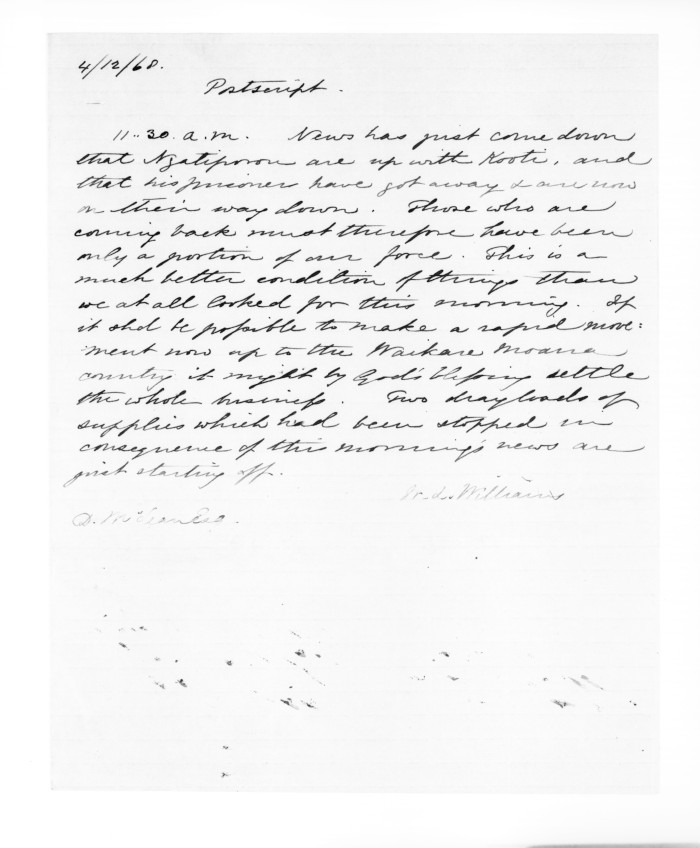 4/12/68.
Postscript.
11.30. a.m. News has just come down
that Ngatiporou are up with Kooti, and
that his prisoner have got away & are now
on their way down. Those who are
coming back must therefore have been
only a portion of our force. This is a
much better condition of things than
we at all looked for this morning. If
it shd be possible to make a rapid move=
ment now up to the Waikare Moana
country it might by God's blessing settle
the whole business. Two dray loads of
supplies which had been stopped in
consequence of this morning's news are
just starting off.
W. L. Williams
D. McLean Esq.